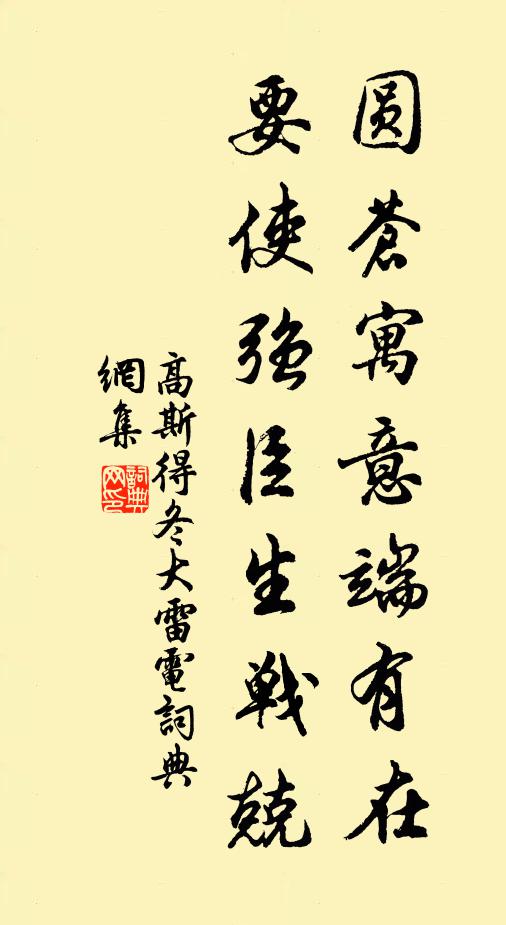 圆苍寓意端有在
要使强臣生戰兢
高斯得冬大雷電詞典
網集
詞典网印